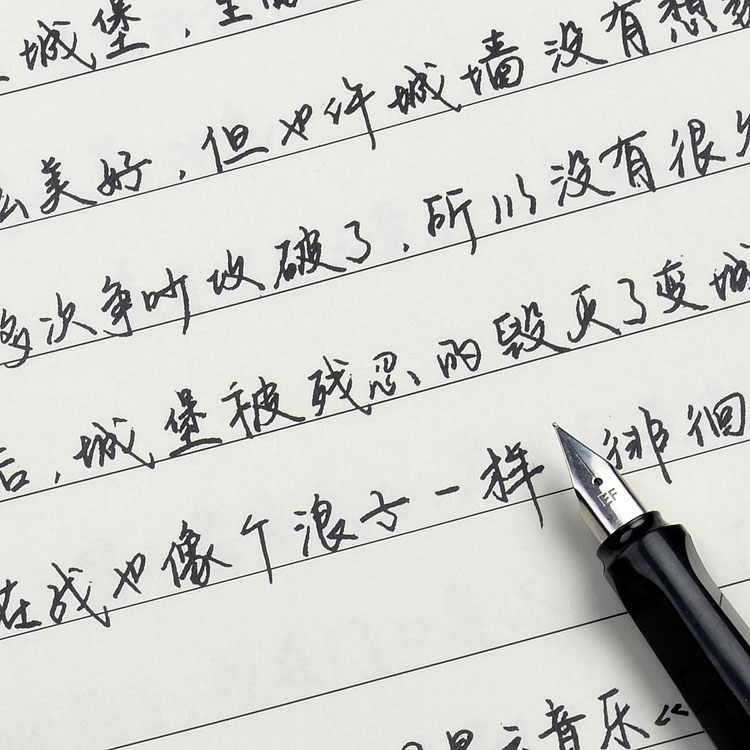 城堡，里
么美好，但也许城墙没有想
多次争吵攻破了，所以没有很
后，城堡被残忍的毁灭了变城
在我也像个浪子一样 徘徊
音乐《
EF